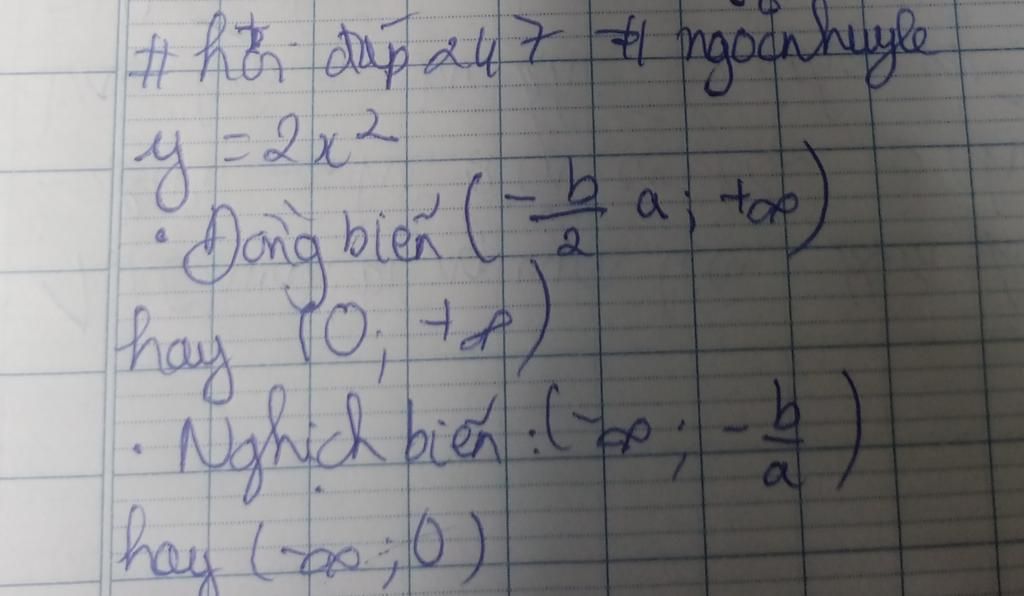 # hỏi đáp 247 # ngocnhuyle
y = 2x²
• Đồng biến (-b/2 a; +∞)
hay (0; +∞)
• Nghịch biến : (-∞; -b/a)
hay (-∞; 0)